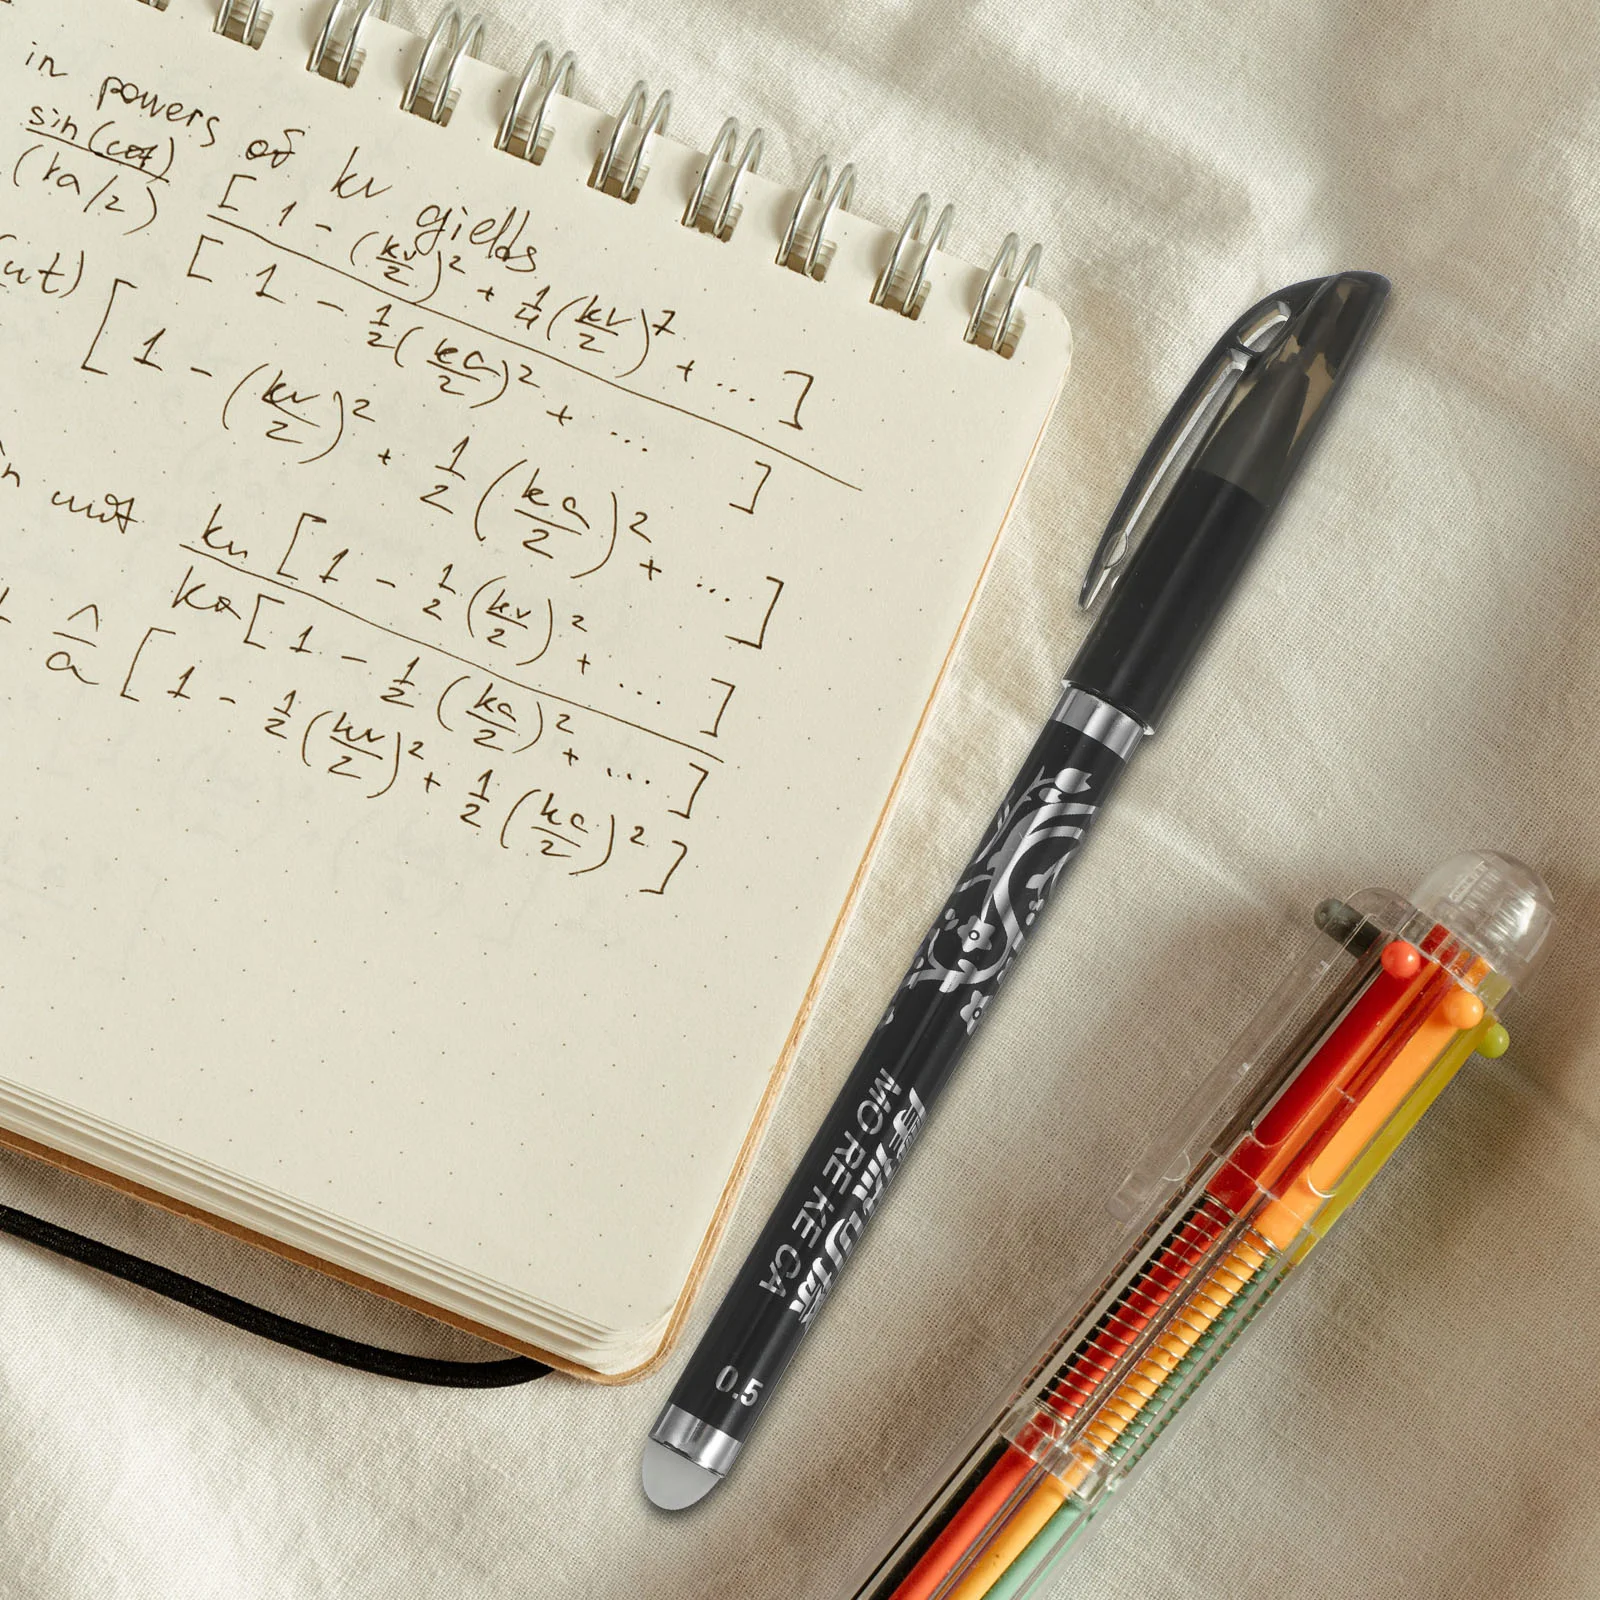 in powers of kv gields
sin(cot) / (ka/2) [1 - (kv/2)² + 1/4 (kv/2)⁷ + ...]
[1 - 1/2 (ka/2)² + ... ]
ut) [1 - (kv/2)² + 1/2 (ka/2)² + ...]
kv [1 - 1/2 (kv/2)² + ... ]
ka [1 - 1/2 (ka/2)² + ... ]
^/a [1 - 1/2 (kv/2)² + 1/2 (ka/2)²]
MO RE KE CA
0.5